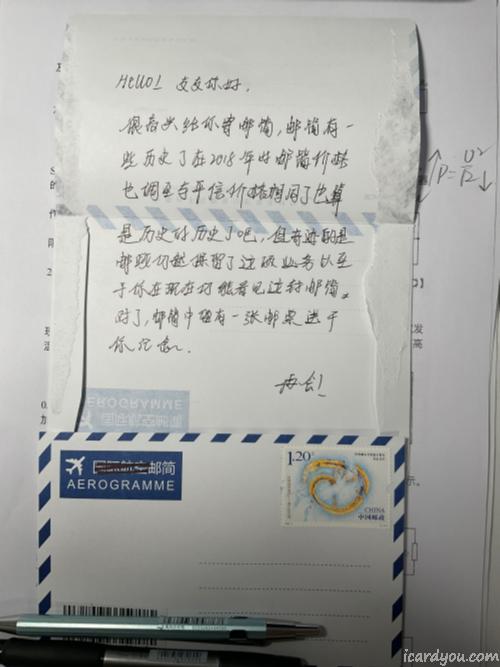 Hello! 友友你好,
很高兴给你寄邮简,邮简有一
些历史了在2018年时邮简价格
也调至与平信价格相同了也算
是历史的历史了吧,但奇迹的是
邮政仍然保留了这项业务以至
于你在现在才能看见这封邮简。
对了,邮简中还有一张邮票送于
你
再会!
AEROGRAMME
国际航空邮简
AEROGRAMME
1.20元
CHINA
中国邮政
P=U²/R
icardyou.com